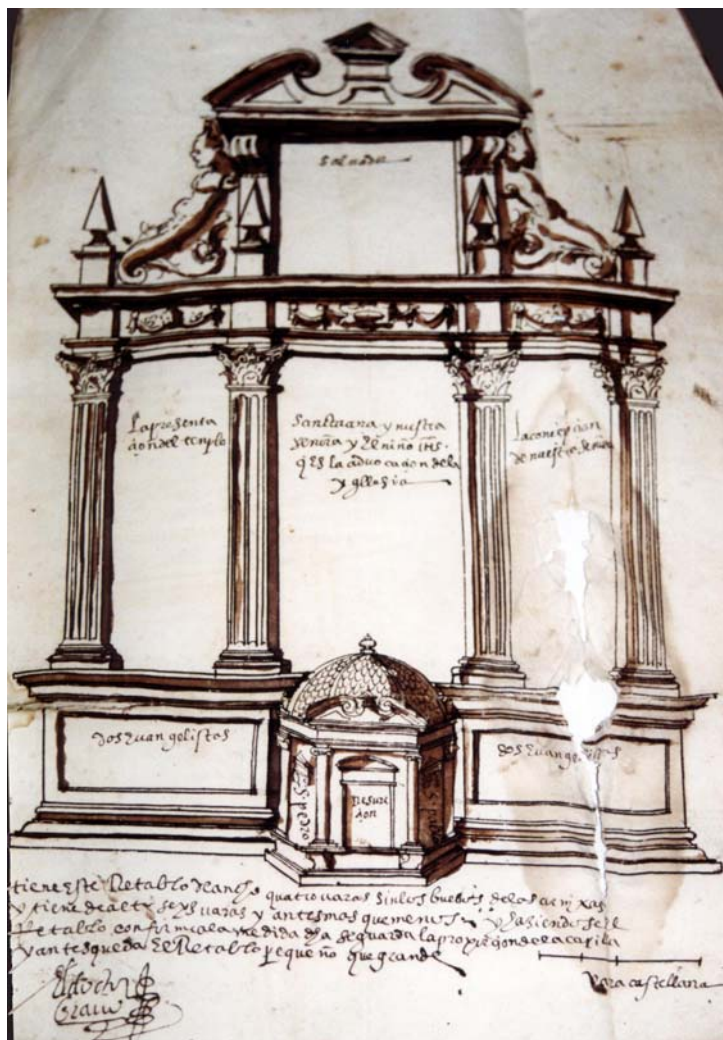 Salvador
La presenta
çion del templo
Santa ana y nuestra
señora y El niño ihs.
q̃ es la advocaçion de la
ygllesia
La conçepçion
de nuestra señora
dos Evangelistas
dos Evangelistas
S. pedro
Resure
çion
tiene Este Retablo de ancho quatro varas sin los buelos de las
y tiene de alto seys varas y antes mas que menos y haziendose El
Retablo conforme a la medida dha se guarda la proporçion de la capilla
y antes queda El Retablo pequeño que grande
El doctor
vara castellana